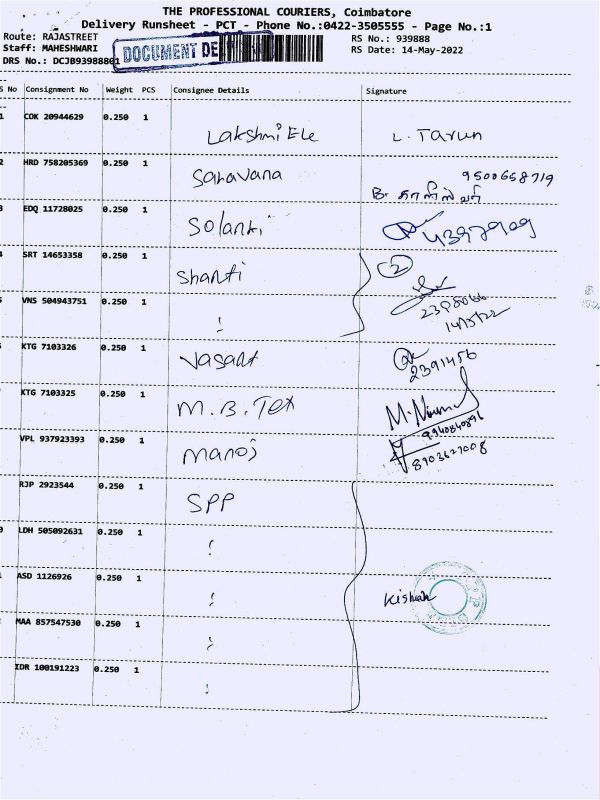 THE PROFESSIONAL COURIERS, Coimbatore
Delivery Runsheet - PCT - Phone No.:0422-3505555 - Page No.:1
Route: RAJASTREET
RS No.: 939888
Staff: MAHESHWARI
DOCUMENT DE
RS Date: 14-May-2022
DRS No.: DCJB93988801
S No Consignment No Weight PCS Consignee Details Signature
1 COK 20944629 0.250 1
Lakshmi Ele L. Tarun
2 HRD 758205369 0.250 1
Saravana 9500658719
B.
3 EDQ 11728025 0.250 1
Solanki 4397909
SRT 14653358 0.250 1
Shanti 2
VNS 504943751 0.250 1
14/5/22
KTG 7103326 0.250 1
Vasant 2391456
KTG 7103325 0.250 1
M.B. Tex
VPL 937923393 0.250 1
Manoj 8903627008
RJP 2923544 0.250 1
SPP
LDH 505092631 0.250 1
ASD 1126926 0.250 1
Kishan
MAA 857547530 0.250 1
IDR 100191223 0.250 1